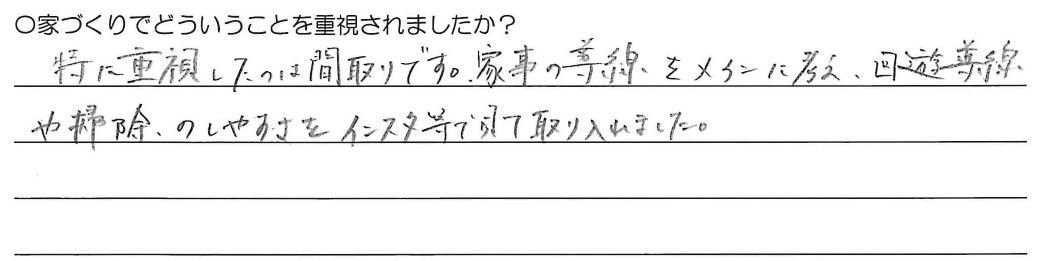 〇家づくりでどういうことを重視されましたか？
特に重視したのは間取りです。家事の導線をメインに考え、回遊導線
や掃除のしやすさをインスタ等で見て取り入れました。